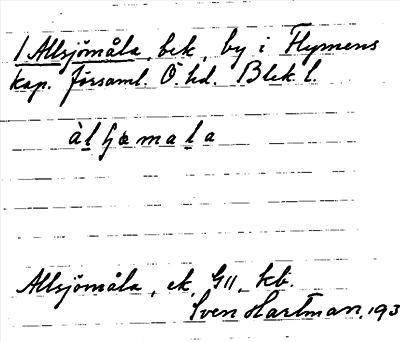 1 Allsjömåla, bek. by i Flymens
kap. församl. Ö. hd. Blek. l.
àlʃœmala
Allsjömåla, ek. G11, kb.
Sven Hartman, 193